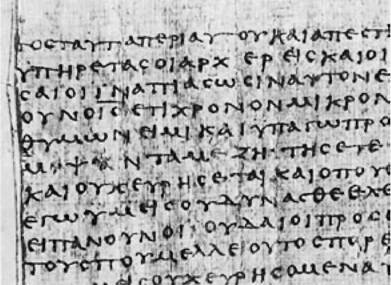 ΤΟϹΤΑΥΤΑΠΕΡΙΑΥΤΟΥΚΑΙΑΠΕϹΤΙ
ΥΠΗΡΕΤΑϹΟΙΑΡΧΙΕΡΕΙϹΚΑΙΟΙ
ϹΑΙΟΙΙΝΑΠΙΑϹΩϹΙΝΑΥΤΟΝΕ
ΟΥΝΟΙϹΕΤΙΧΡΟΝΟΝΜΙΚΡΟΝ
ΘΥΜΩΝΕΙΜΙΚΑΙΥΠΑΓΩΠΡΟ
ΝΤΑΜΕΖΗΤΗϹΕΤΕ
ΚΑΙΟΥΧΕΥΡΗϹΕΤΑΙΚΑΙΟΠΟΥ
ΕΓΩΥΜΕΙϹΟΥΔΥΝΑϹΘΕΕΛΘΕ
ΕΙΠΑΝΟΥΝΟΙΙΟΥΔΑΙΟΙΠΡΟϹ
ΤΟΥϹΠΟΥΜΕΛΛΕΙΟΥΤΟϹΠΟΡΕ
ΜΕΙϹΟΥΧΕΥΡΗϹΟΜΕΝΑ